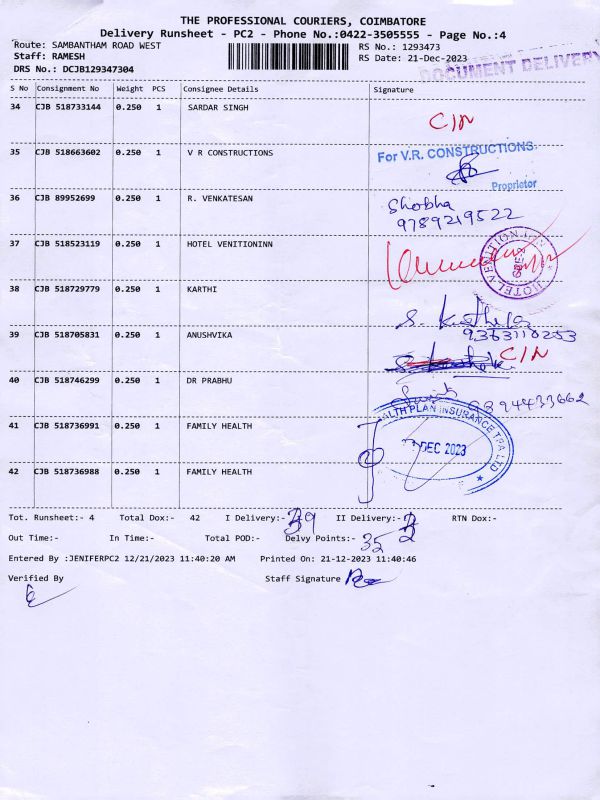 THE PROFESSIONAL COURIERS, COIMBATORE
Delivery Runsheet - PC2 - Phone No.:0422-3505555 - Page No.:4
Route: SAMBANTHAM ROAD WEST RS No.: 1293473
Staff: RAMESH RS Date: 21-Dec-2023
DRS No.: DCJB129347304 DOCUMENT DELIVERY
S No Consignment No Weight PCS Consignee Details Signature
34 CJB 518733144 0.250 1 SARDAR SINGH
C/N
35 CJB 518663602 0.250 1 V R CONSTRUCTIONS For V.R. CONSTRUCTIONS
Proprietor
36 CJB 89952699 0.250 1 R. VENKATESAN Shobha
9789219522
37 CJB 518523119 0.250 1 HOTEL VENITIONINN
38 CJB 518729779 0.250 1 KARTHI
9363110253
39 CJB 518705831 0.250 1 ANUSHVIKA C/N
40 CJB 518746299 0.250 1 DR PRABHU
9894433662
41 CJB 518736991 0.250 1 FAMILY HEALTH ALTH PLAN INSURANCE TPA LTD
DEC 2023
42 CJB 518736988 0.250 1 FAMILY HEALTH
Tot. Runsheet:- 4 Total Dox:- 42 I Delivery:- 39 II Delivery:- 3 RTN Dox:-
Out Time:- In Time:- Total POD:- Delvy Points:- 35
Entered By :JENIFERPC2 12/21/2023 11:40:20 AM Printed On: 21-12-2023 11:40:46
Verified By Staff Signature